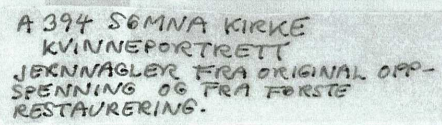 A 394 SØMNA KIRKE
KVINNEPORTRETT
JERNNAGLER FRA ORIGINAL OPP-
SPENNING OG FRA FØRSTE
RESTAURERING.